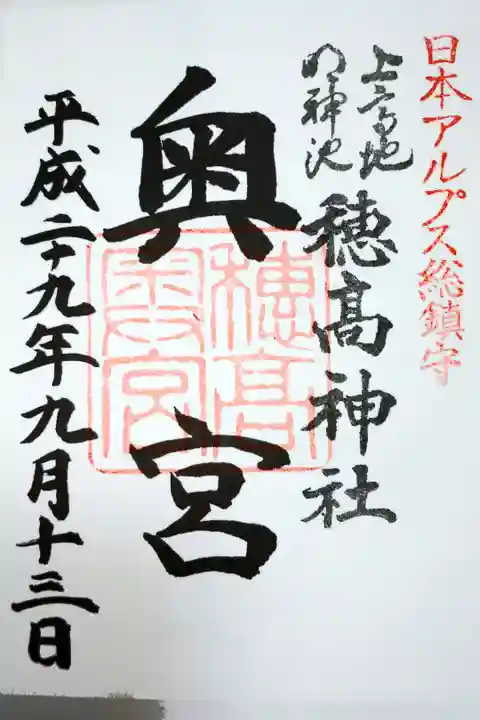 日本アルプス総鎮守
上高地
明神池
穂髙神社
奥宮
穂高
奥宮
平成二十九年九月十三日